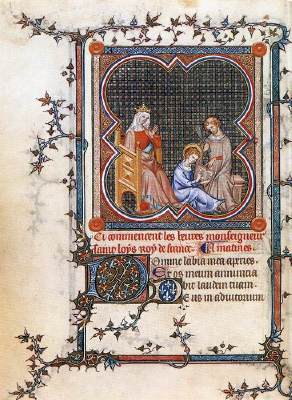 Ci commencent les heures monseigneur
saint loys roy de france. A matines
Domine labia mea aperies
Et os meum annuncia
bit laudem tuam.
Deus in adiutorium